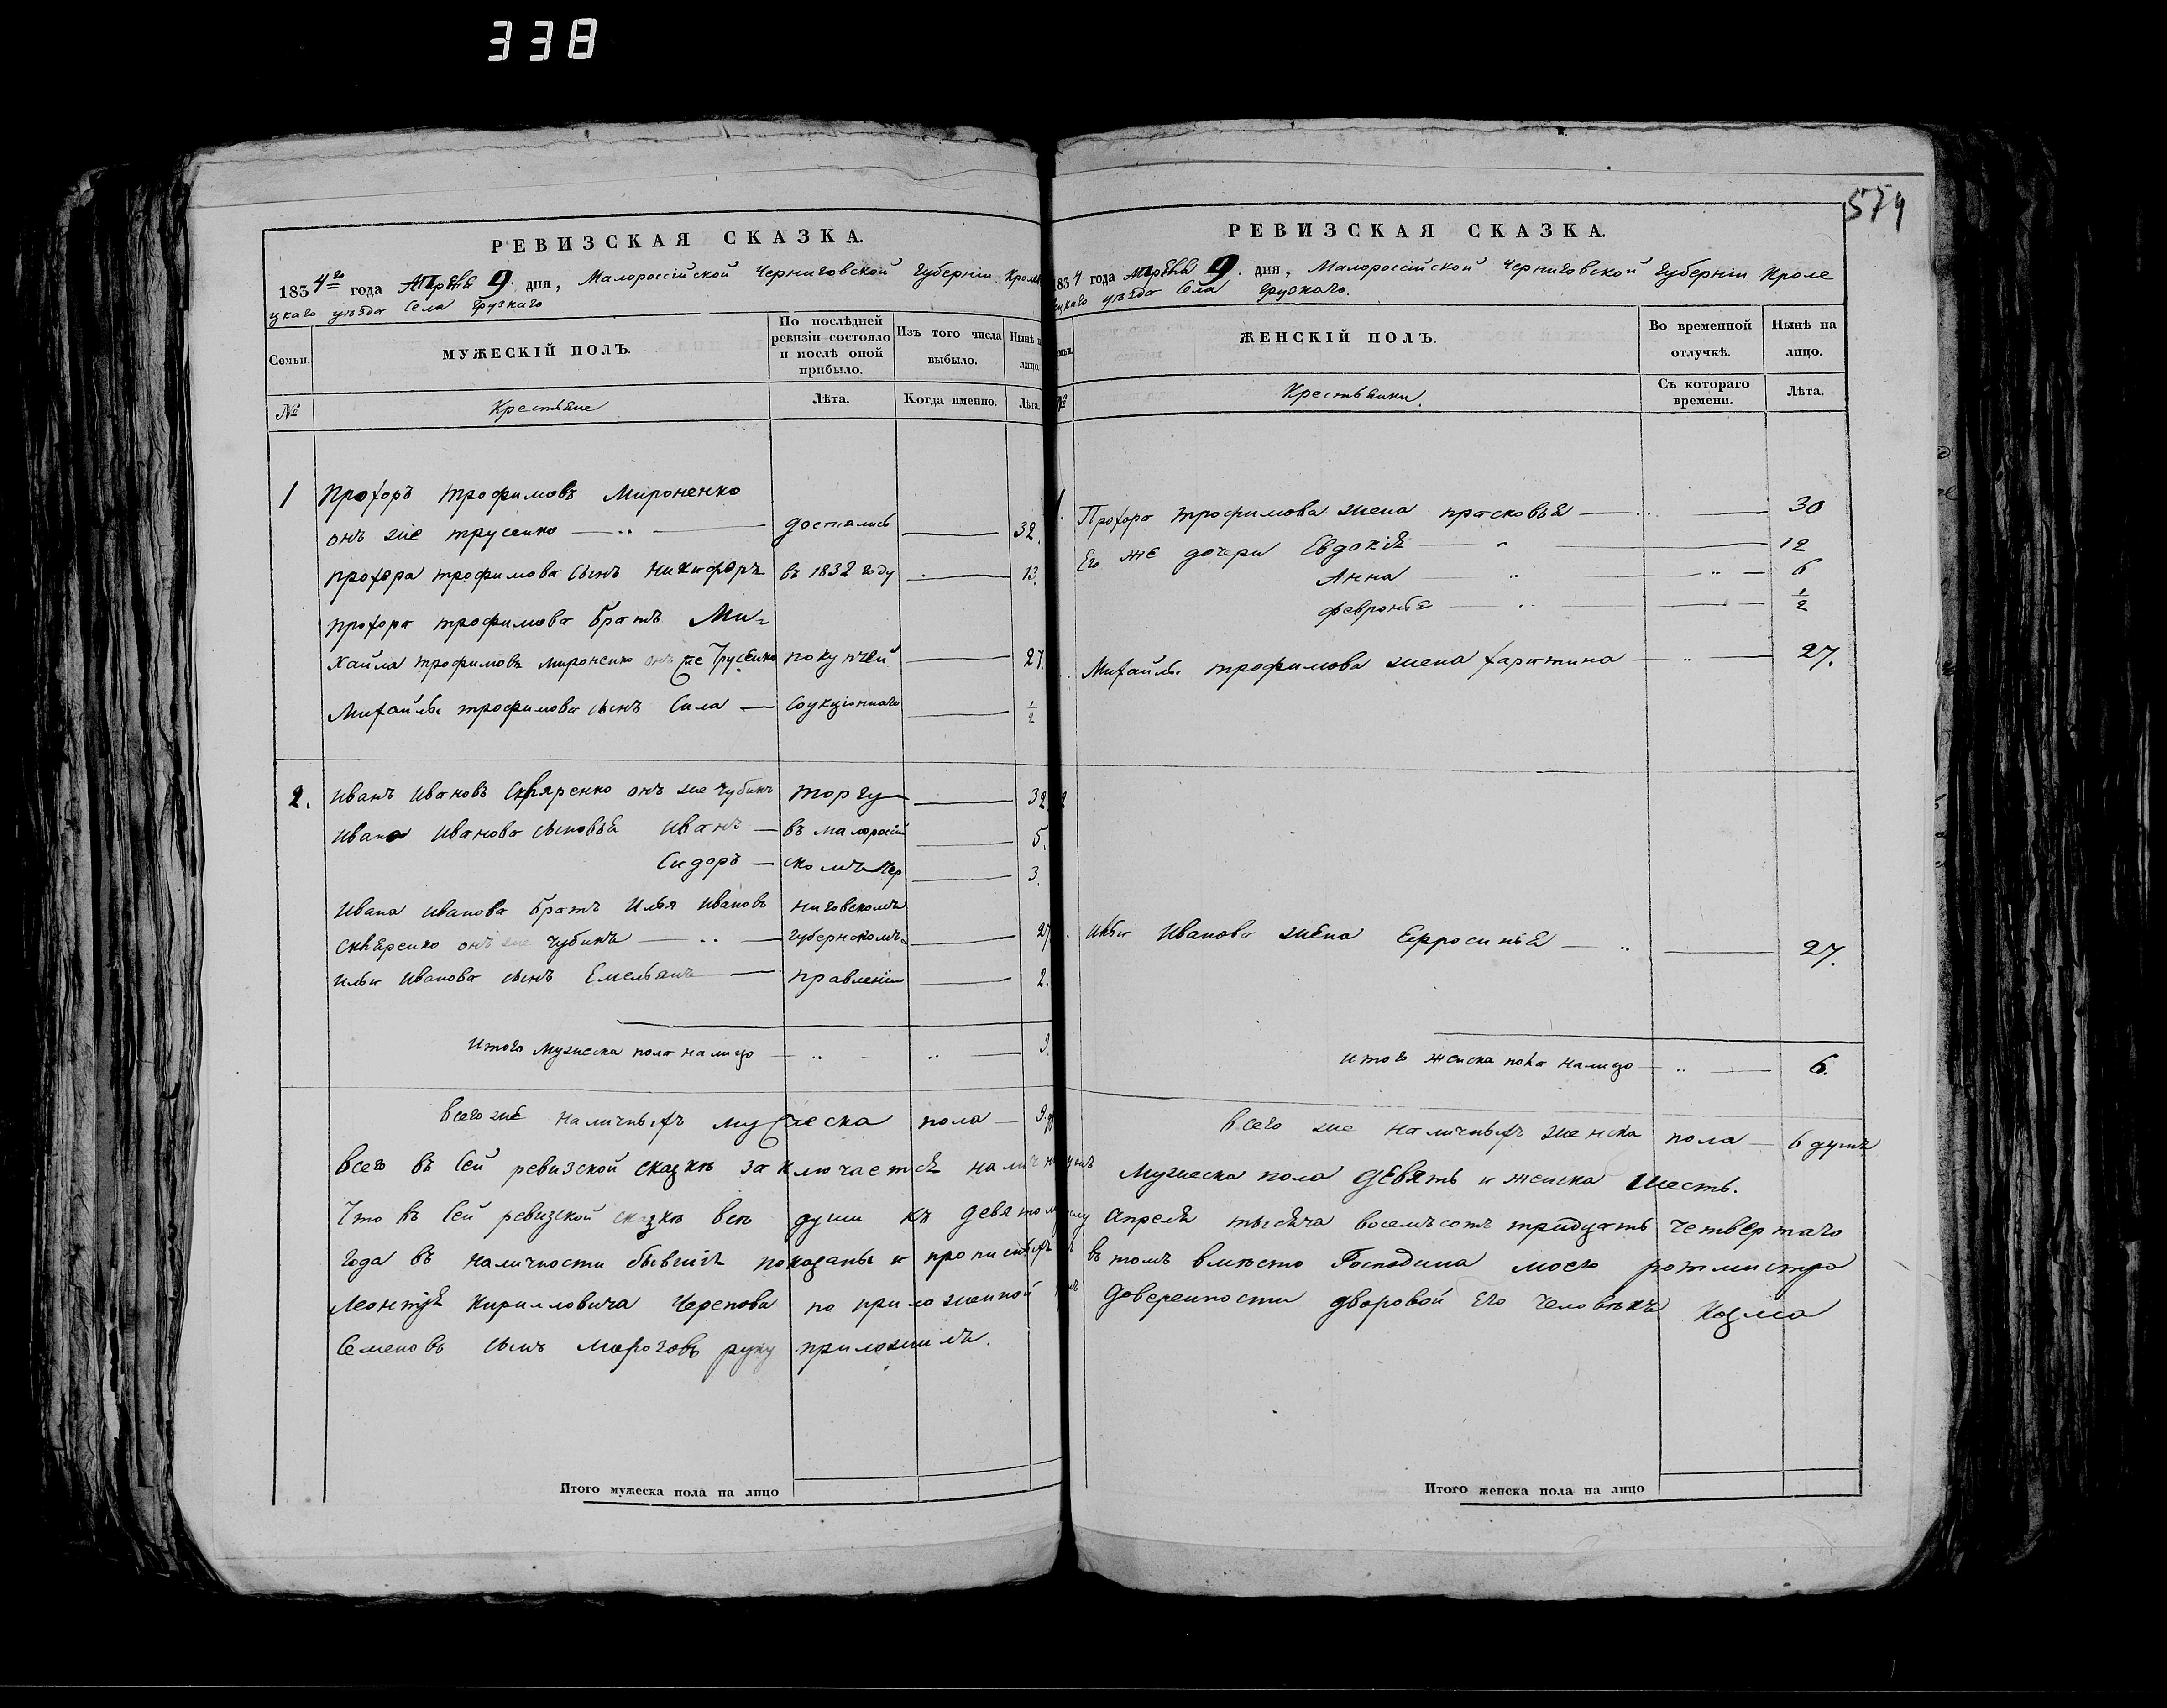 338
574
РЕВИЗСКАЯ СКАЗКА.
1834го года Апреля 9. дня, Малороссійской Черниговской Губерніи Кроле
уѣзда Села Грузкаго
Семьи.
МУЖЕСКІЙ ПОЛЪ.
По послѣдней ревизіи состояло и послѣ оной прибыло.
Изъ того числа выбыло.
Нынѣ на лицо.
№
Крестьяне
Лѣта.
Когда именно.
Лѣта.
1 Прохоръ трофимовъ Мироненко
онъ же трусенко — достались — 32.
прохора трофимова сынъ никифоръ въ 1832 году — 13.
прохора трофимова братъ Ми-
хайла трофимовъ мироненко онъ же Трусенко покупкой — 27.
Михайлы трофимова сынъ Сила — Соукціоннаго — 1/2
2. иванъ ивановъ Скляренко онъ же чубинъ торгу — 32
ивана иванова сыновья иванъ — въ малоросій — 5.
Сидоръ — скомъ Чер — 3.
ивана иванова братъ илья ивановъ ниговскомъ
скляренко онъ же чубинъ — губернскомъ — 27
ильи иванова сынъ Емельянъ — правленіи — 2.
итого мужеска пола налицо — 9.
всего же наличныхъ мужеска пола — 9
РЕВИЗСКАЯ СКАЗКА.
1834 года Апреля 9. дня, Малороссійской Черниговской Губерніи Кроле
вецкаго уѣзда Села Грузкаго.
Семьи.
ЖЕНСКІЙ ПОЛЪ.
Во временной отлучкѣ.
Нынѣ на лицо.
№
Крестьянки.
Съ котораго времени.
Лѣта.
1. Прохора трофимова жена прасковья — 30
Его же дочери Евдокія — 12
Анна — 6
февронья — 1/2
Михайлы трофимова жена харитина — 27.
2
ильи Иванова жена Ефросинья — 27.
итого женска пола налицо — 6.
всего же наличныхъ женска пола — 6 душъ
всего въ Сей ревизской сказкѣ заключается наличныхъ Мужеска пола девять и женска шесть.
Что въ Сей ревизской сказкѣ всѣ души къ девятому числу апреля тысяча восемьсотъ тридцать четвертаго
года въ наличности бывшія показаны и прописныхъ въ томъ вместо Господина моего ротмистра
Леонтія Кирилловича Черепова по приложенной доверенности дворовой Его человѣкъ Козма
Семеновъ сынъ Мороговъ руку приложилъ.
Итого мужеска пола на лицо
Итого женска пола на лицо